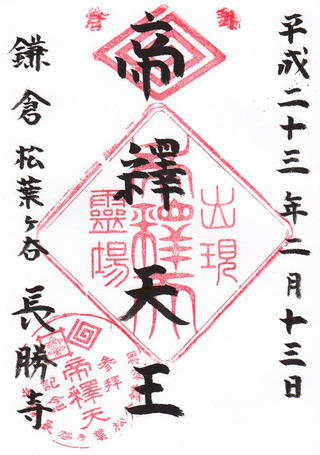 平成二十三年二月十三日
鎌倉
帝釋天王
出現
帝釋天
靈場
鎌倉松葉ヶ谷 長勝寺
参拝
帝釋天
記念